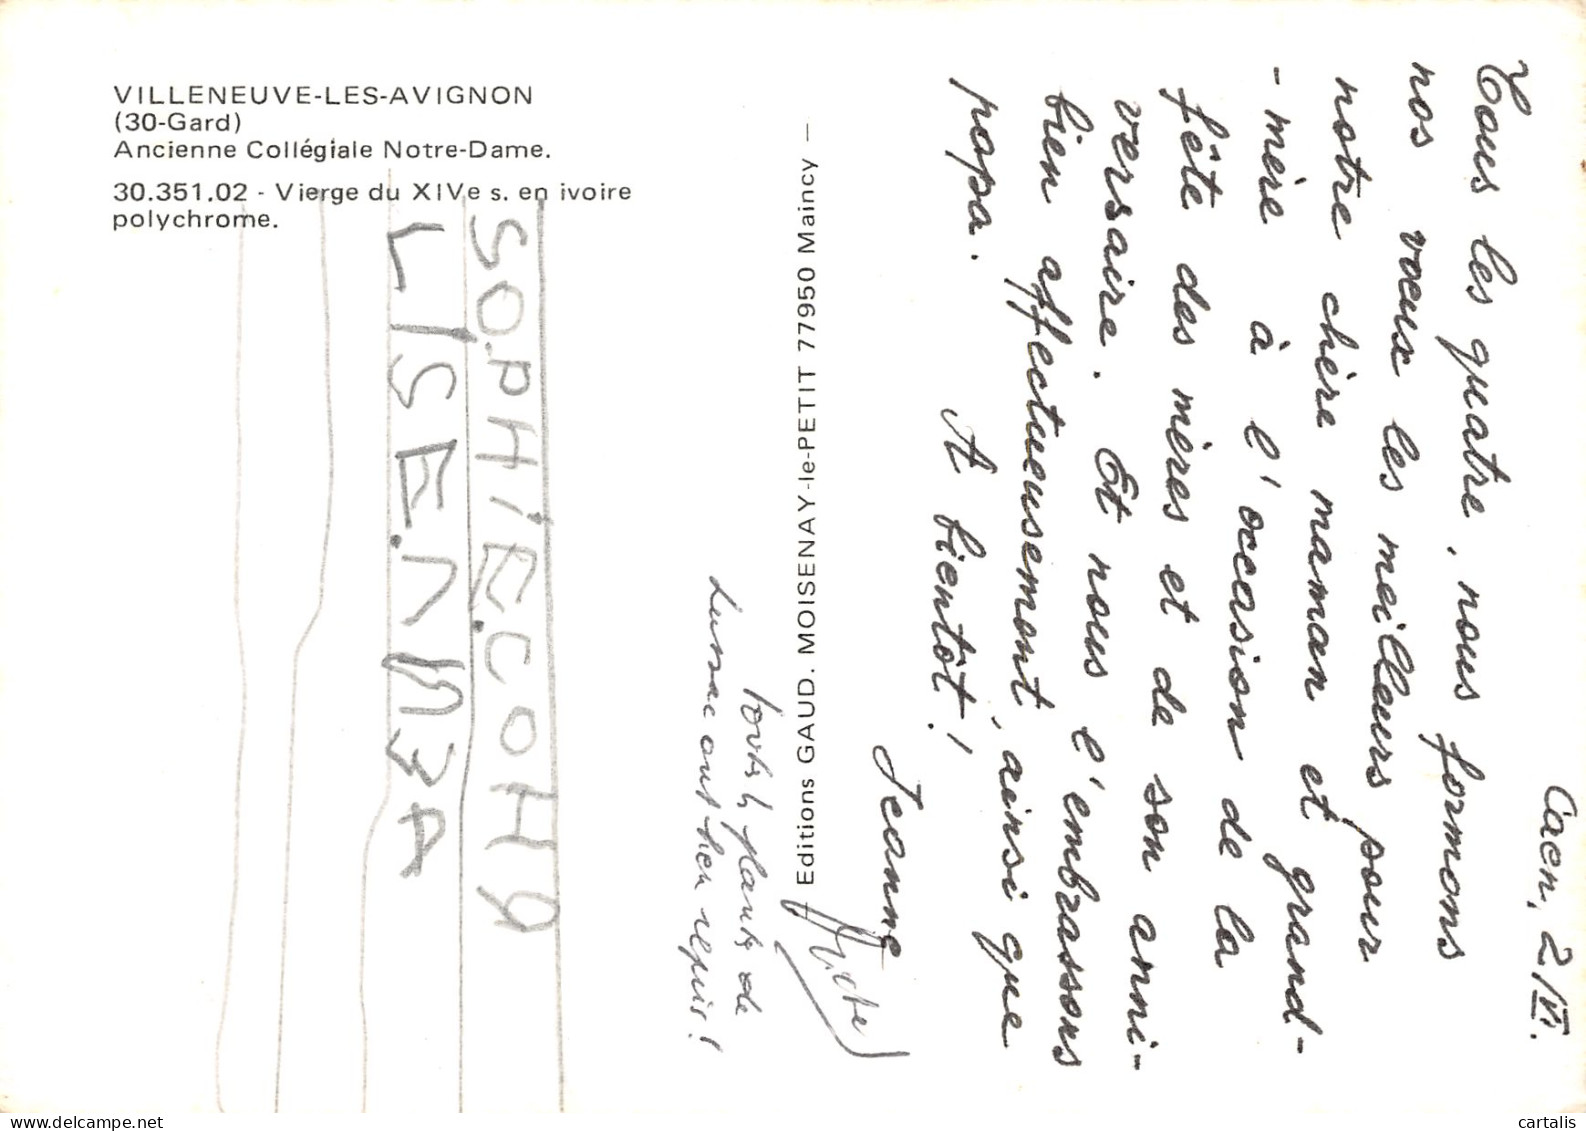 VILLENEUVE-LES-AVIGNON
(30-Gard)
Ancienne Collégiale Notre-Dame.
30.351.02 - Vierge du XIVe s. en ivoire
polychrome.
Editions GAUD. MOISENAY-le-PETIT 77950 Maincy —
Caen, 2/VI.
Tous les quatre, nous formons
nos voeux les meilleurs pour
notre chère maman et grand-
-mère à l'occasion de la
fête des mères et de son anni-
versaire. Et nous l'embrassons
bien affectueusement, ainsi que
papa. A bientôt !
Jeanne
plants de
Lussac ont bien repris !
SO.PHIE.COH
LISE.
cartalis